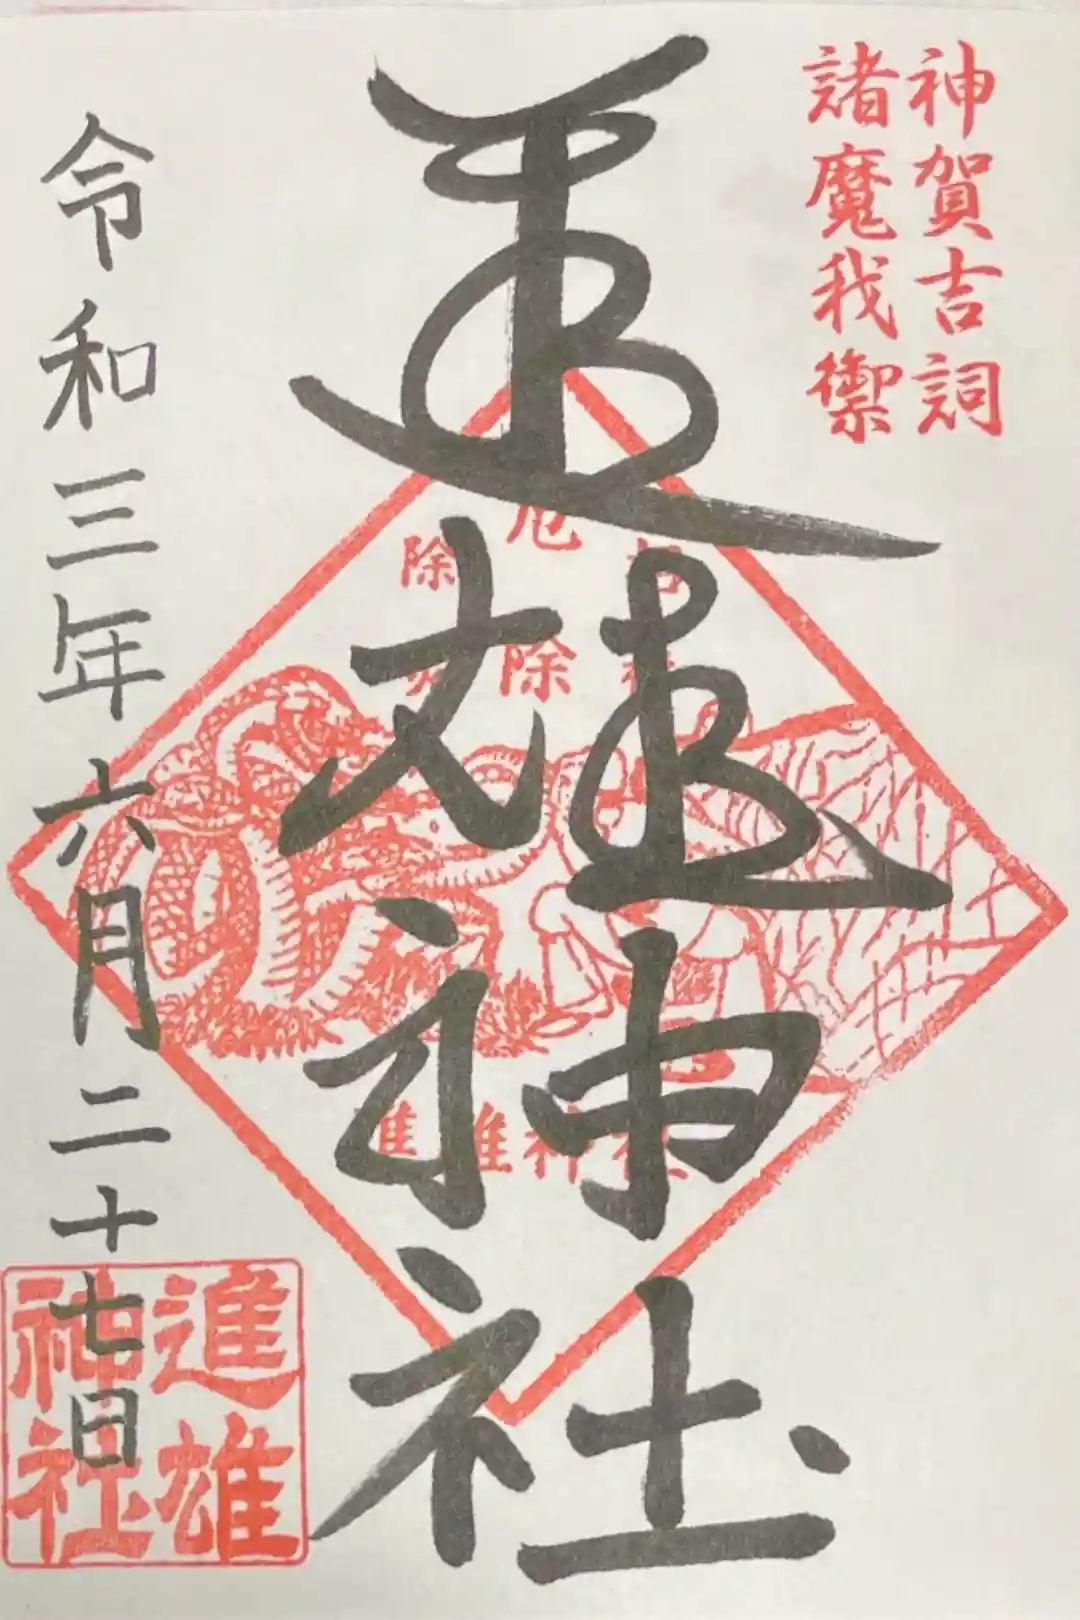 神賀吉詞
諸魔我禦
進雄神社
厄
除
除
進雄神社
令和三年六月二十七日
進雄
神社